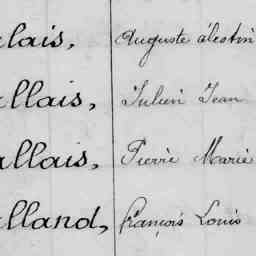 llais, Auguste Célestin
allais, Julien Jean
allais, Pierre Marie
alland, François Louis